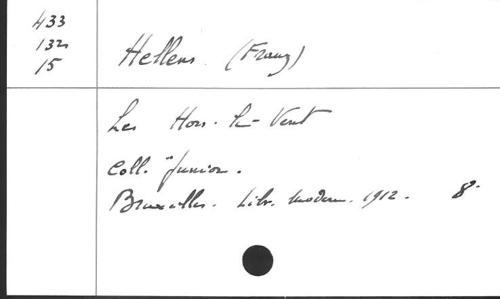 433
132
15
Hellens. (Franz)
Les Hors-le-Vent
Coll. "Junior.
Bruxelles. Libr. moderne. 1912. 8°